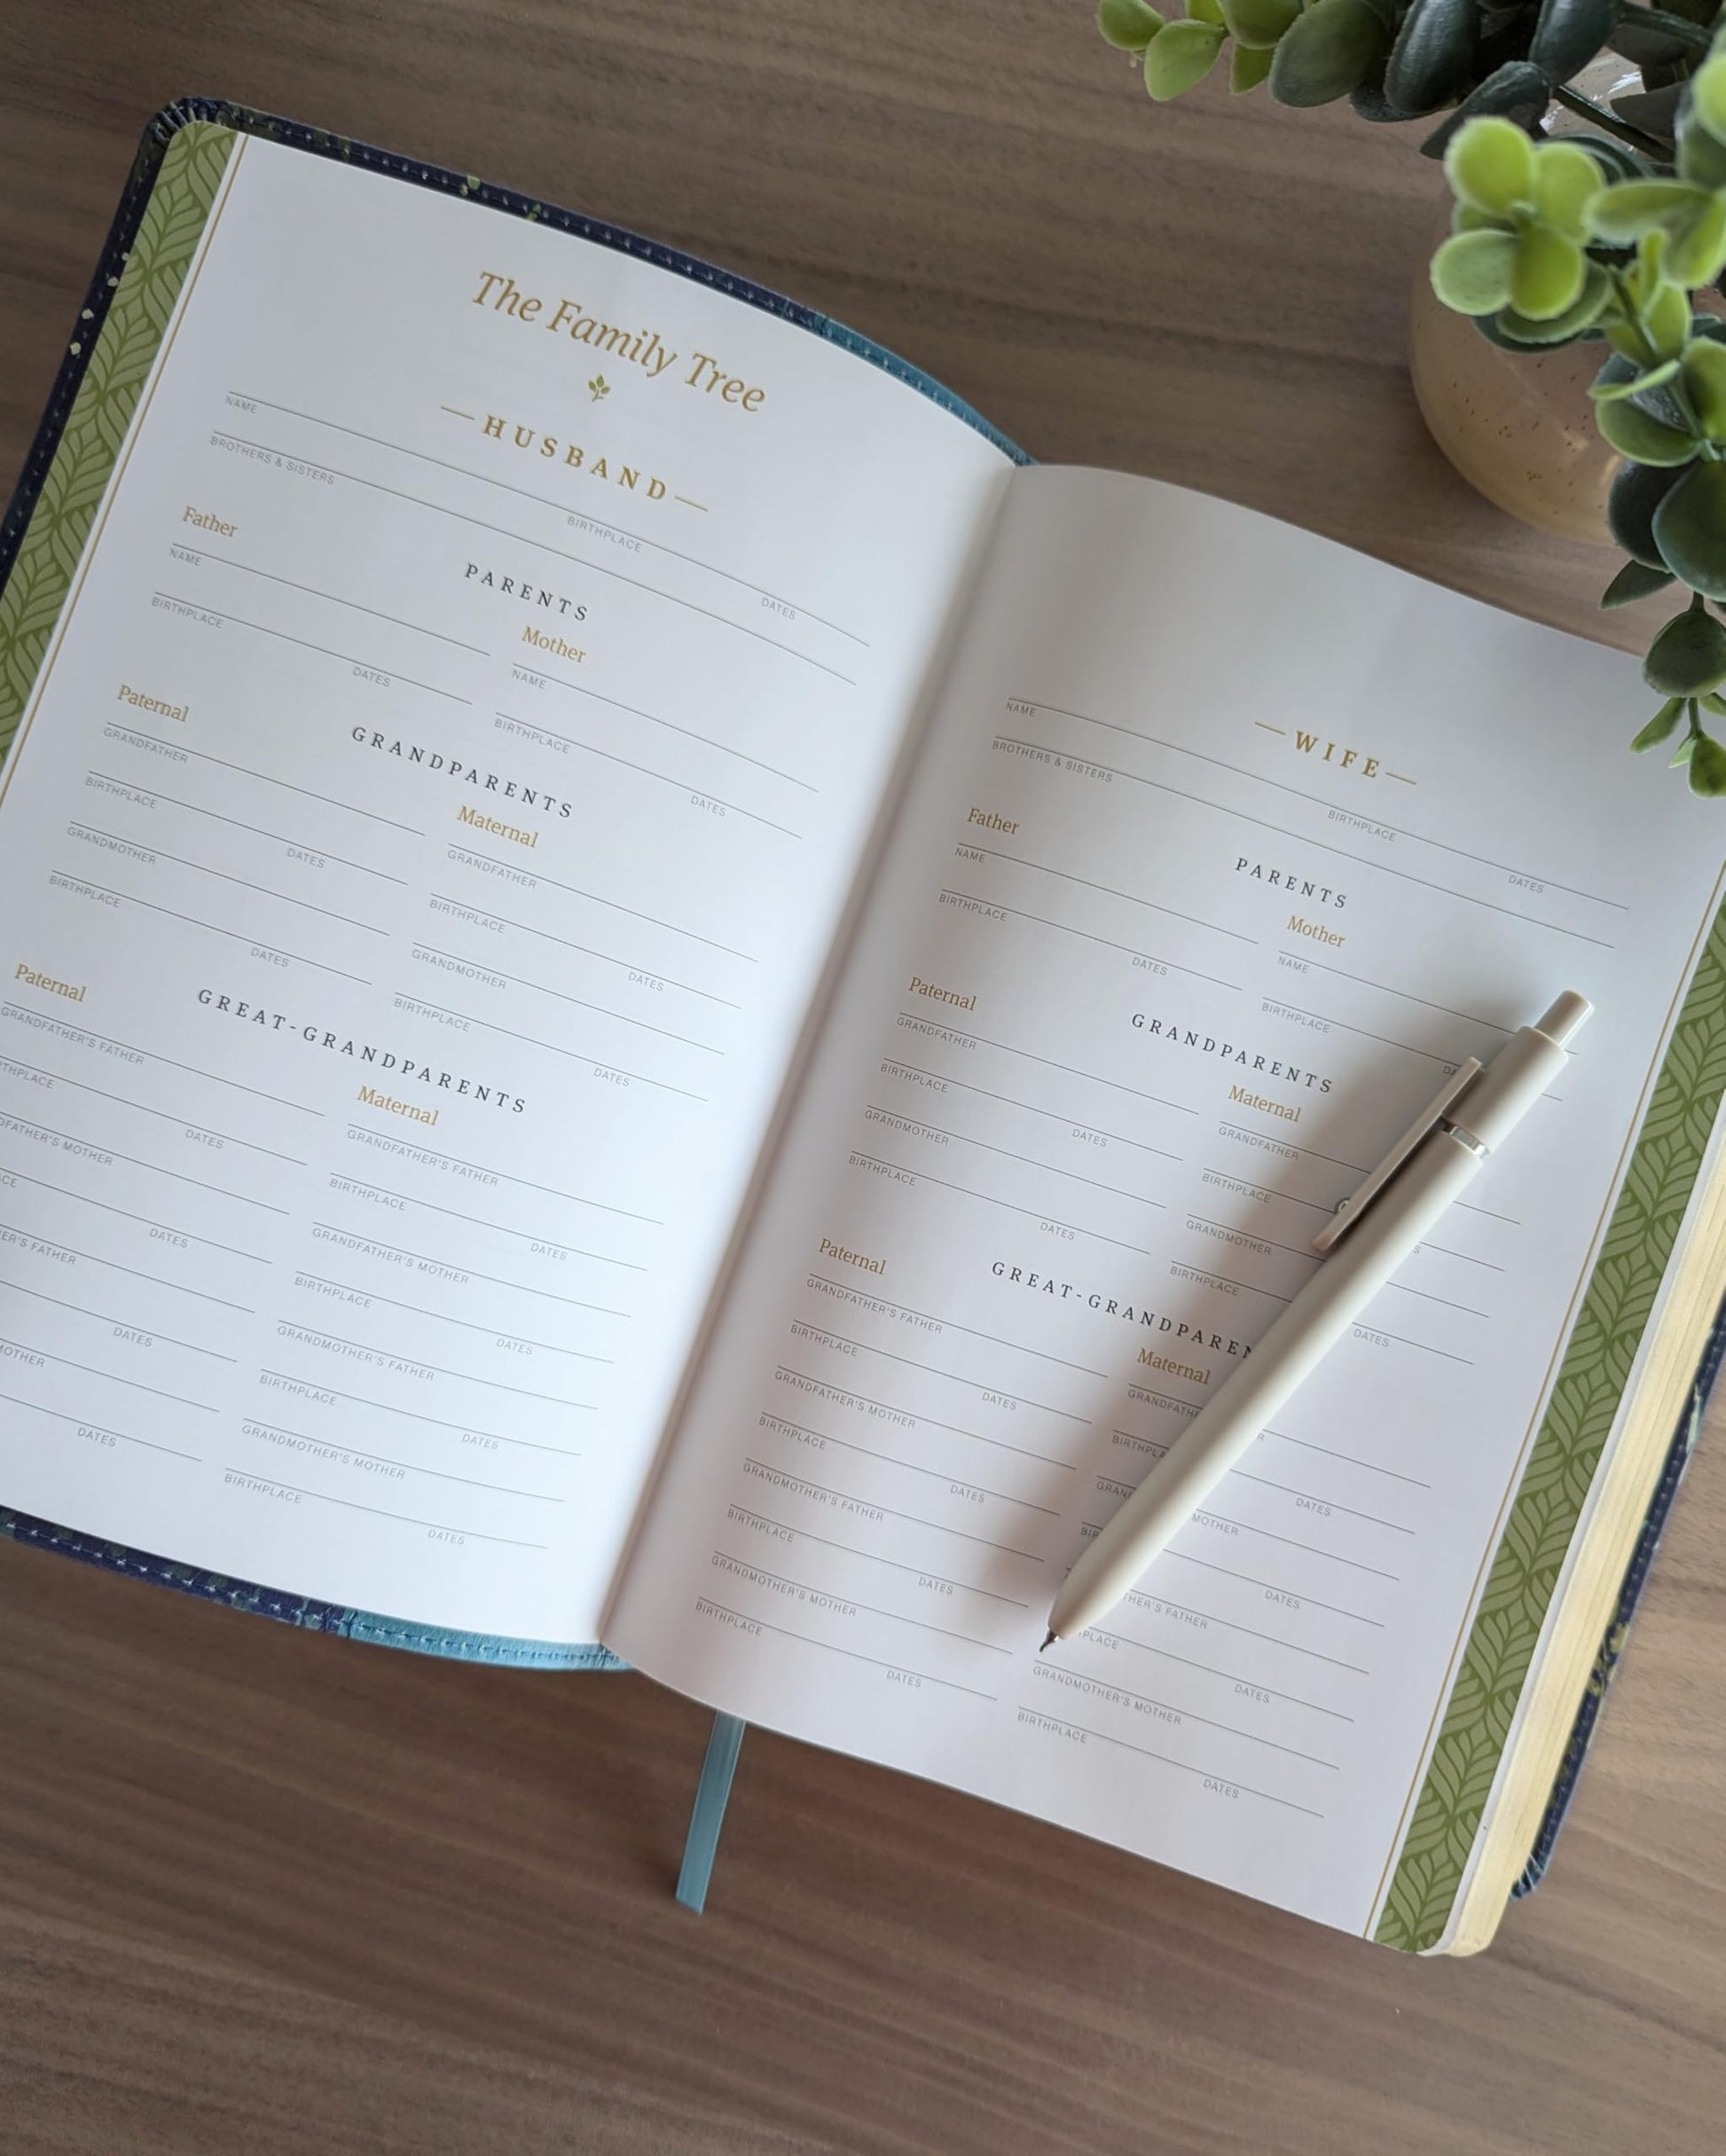 The Family Tree
— HUSBAND —
NAME BIRTHPLACE DATES
BROTHERS & SISTERS
PARENTS
Father
NAME
BIRTHPLACE DATES
Mother
NAME
BIRTHPLACE DATES
GRANDPARENTS
Paternal
GRANDFATHER
BIRTHPLACE DATES
GRANDMOTHER
BIRTHPLACE DATES
Maternal
GRANDFATHER
BIRTHPLACE DATES
GRANDMOTHER
BIRTHPLACE DATES
GREAT-GRANDPARENTS
Paternal
GRANDFATHER'S FATHER
THPLACE DATES
DFATHER'S MOTHER
CE DATES
ER'S FATHER
DATES
MOTHER
DATES
Maternal
GRANDFATHER'S FATHER
BIRTHPLACE DATES
GRANDFATHER'S MOTHER
BIRTHPLACE DATES
GRANDMOTHER'S FATHER
BIRTHPLACE DATES
GRANDMOTHER'S MOTHER
BIRTHPLACE DATES
— WIFE —
NAME BIRTHPLACE DATES
BROTHERS & SISTERS
PARENTS
Father
NAME
BIRTHPLACE DATES
Mother
NAME
BIRTHPLACE DA
GRANDPARENTS
Paternal
GRANDFATHER
BIRTHPLACE DATES
GRANDMOTHER
BIRTHPLACE DATES
Maternal
GRANDFATHER
BIRTHPLACE S
GRANDMOTHER
BIRTHPLACE DATES
GREAT-GRANDPAREN
Paternal
GRANDFATHER'S FATHER
BIRTHPLACE DATES
GRANDFATHER'S MOTHER
BIRTHPLACE DATES
GRANDMOTHER'S FATHER
BIRTHPLACE DATES
GRANDMOTHER'S MOTHER
BIRTHPLACE DATES
Maternal
GRANDFATHE R
BIRTHPLA DATES
GRAN MOTHER
BIR DATES
THER'S FATHER
PLACE DATES
GRANDMOTHER'S MOTHER
BIRTHPLACE DATES